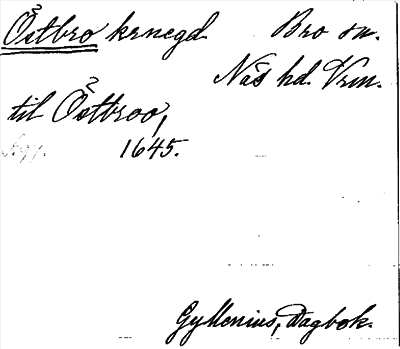 Östbro krnegd. Bro sn.
Näs hd. Vrm.
til Östbroo,
1645.
Gyllenius, Dagbok.